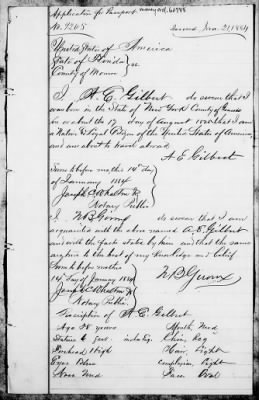 Application for Passport
No. 9265 Issued Jan. 21, 1884
United States of America
State of Florida } ss.
County of Monroe
I A. E. Gilbert do swear that I
was born in the State of New York County of
on or about the 17 day of August that I am
a Native & Loyal Citizen of the United States of America
and am about to travel abroad
A E Gilbert
Sworn to before me this 14th day
of January 1884
Joseph C Whalton Jr
Notary Public
I W B do swear that I am
acquainted with the above named A. E. Gilbert
and with the facts stated by him and that the same
are true to the best of my knowledge and belief
Sworn to before me this
14th day of January 1884
Joseph C Whalton Jr
Notary Public
Description of A E Gilbert
Age years Mouth Med
Stature 6 feet Chin
Forehead High Hair Light
Eyes Blue Complexion Light
Nose Med Face Oval